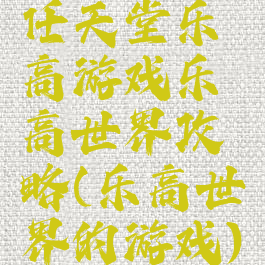 任天堂乐
高游戏乐
高世界攻
略(乐高世
界的游戏)